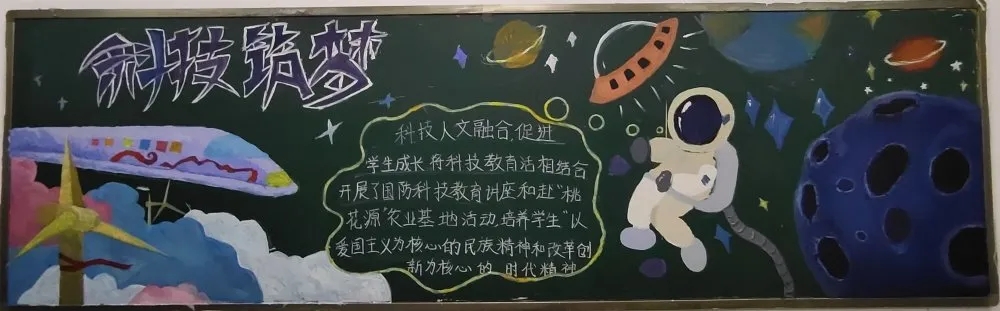 科技筑梦
科技人文融合,促进
学生成长将科技教育活相结合
开展了国防科技教育讲座和赴“桃
花源”农业基地活动,培养学生“以
爱国主义为核心的民族精神和改革创
新为核心的 时代精神